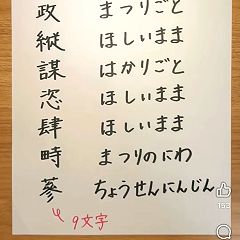 政 まつりごと
縦 ほしいまま
謀 はかりごと
恣 ほしいまま
肆 ほしいまま
畤 まつりのにわ
蔘 ちょうせんにんじん
9文字